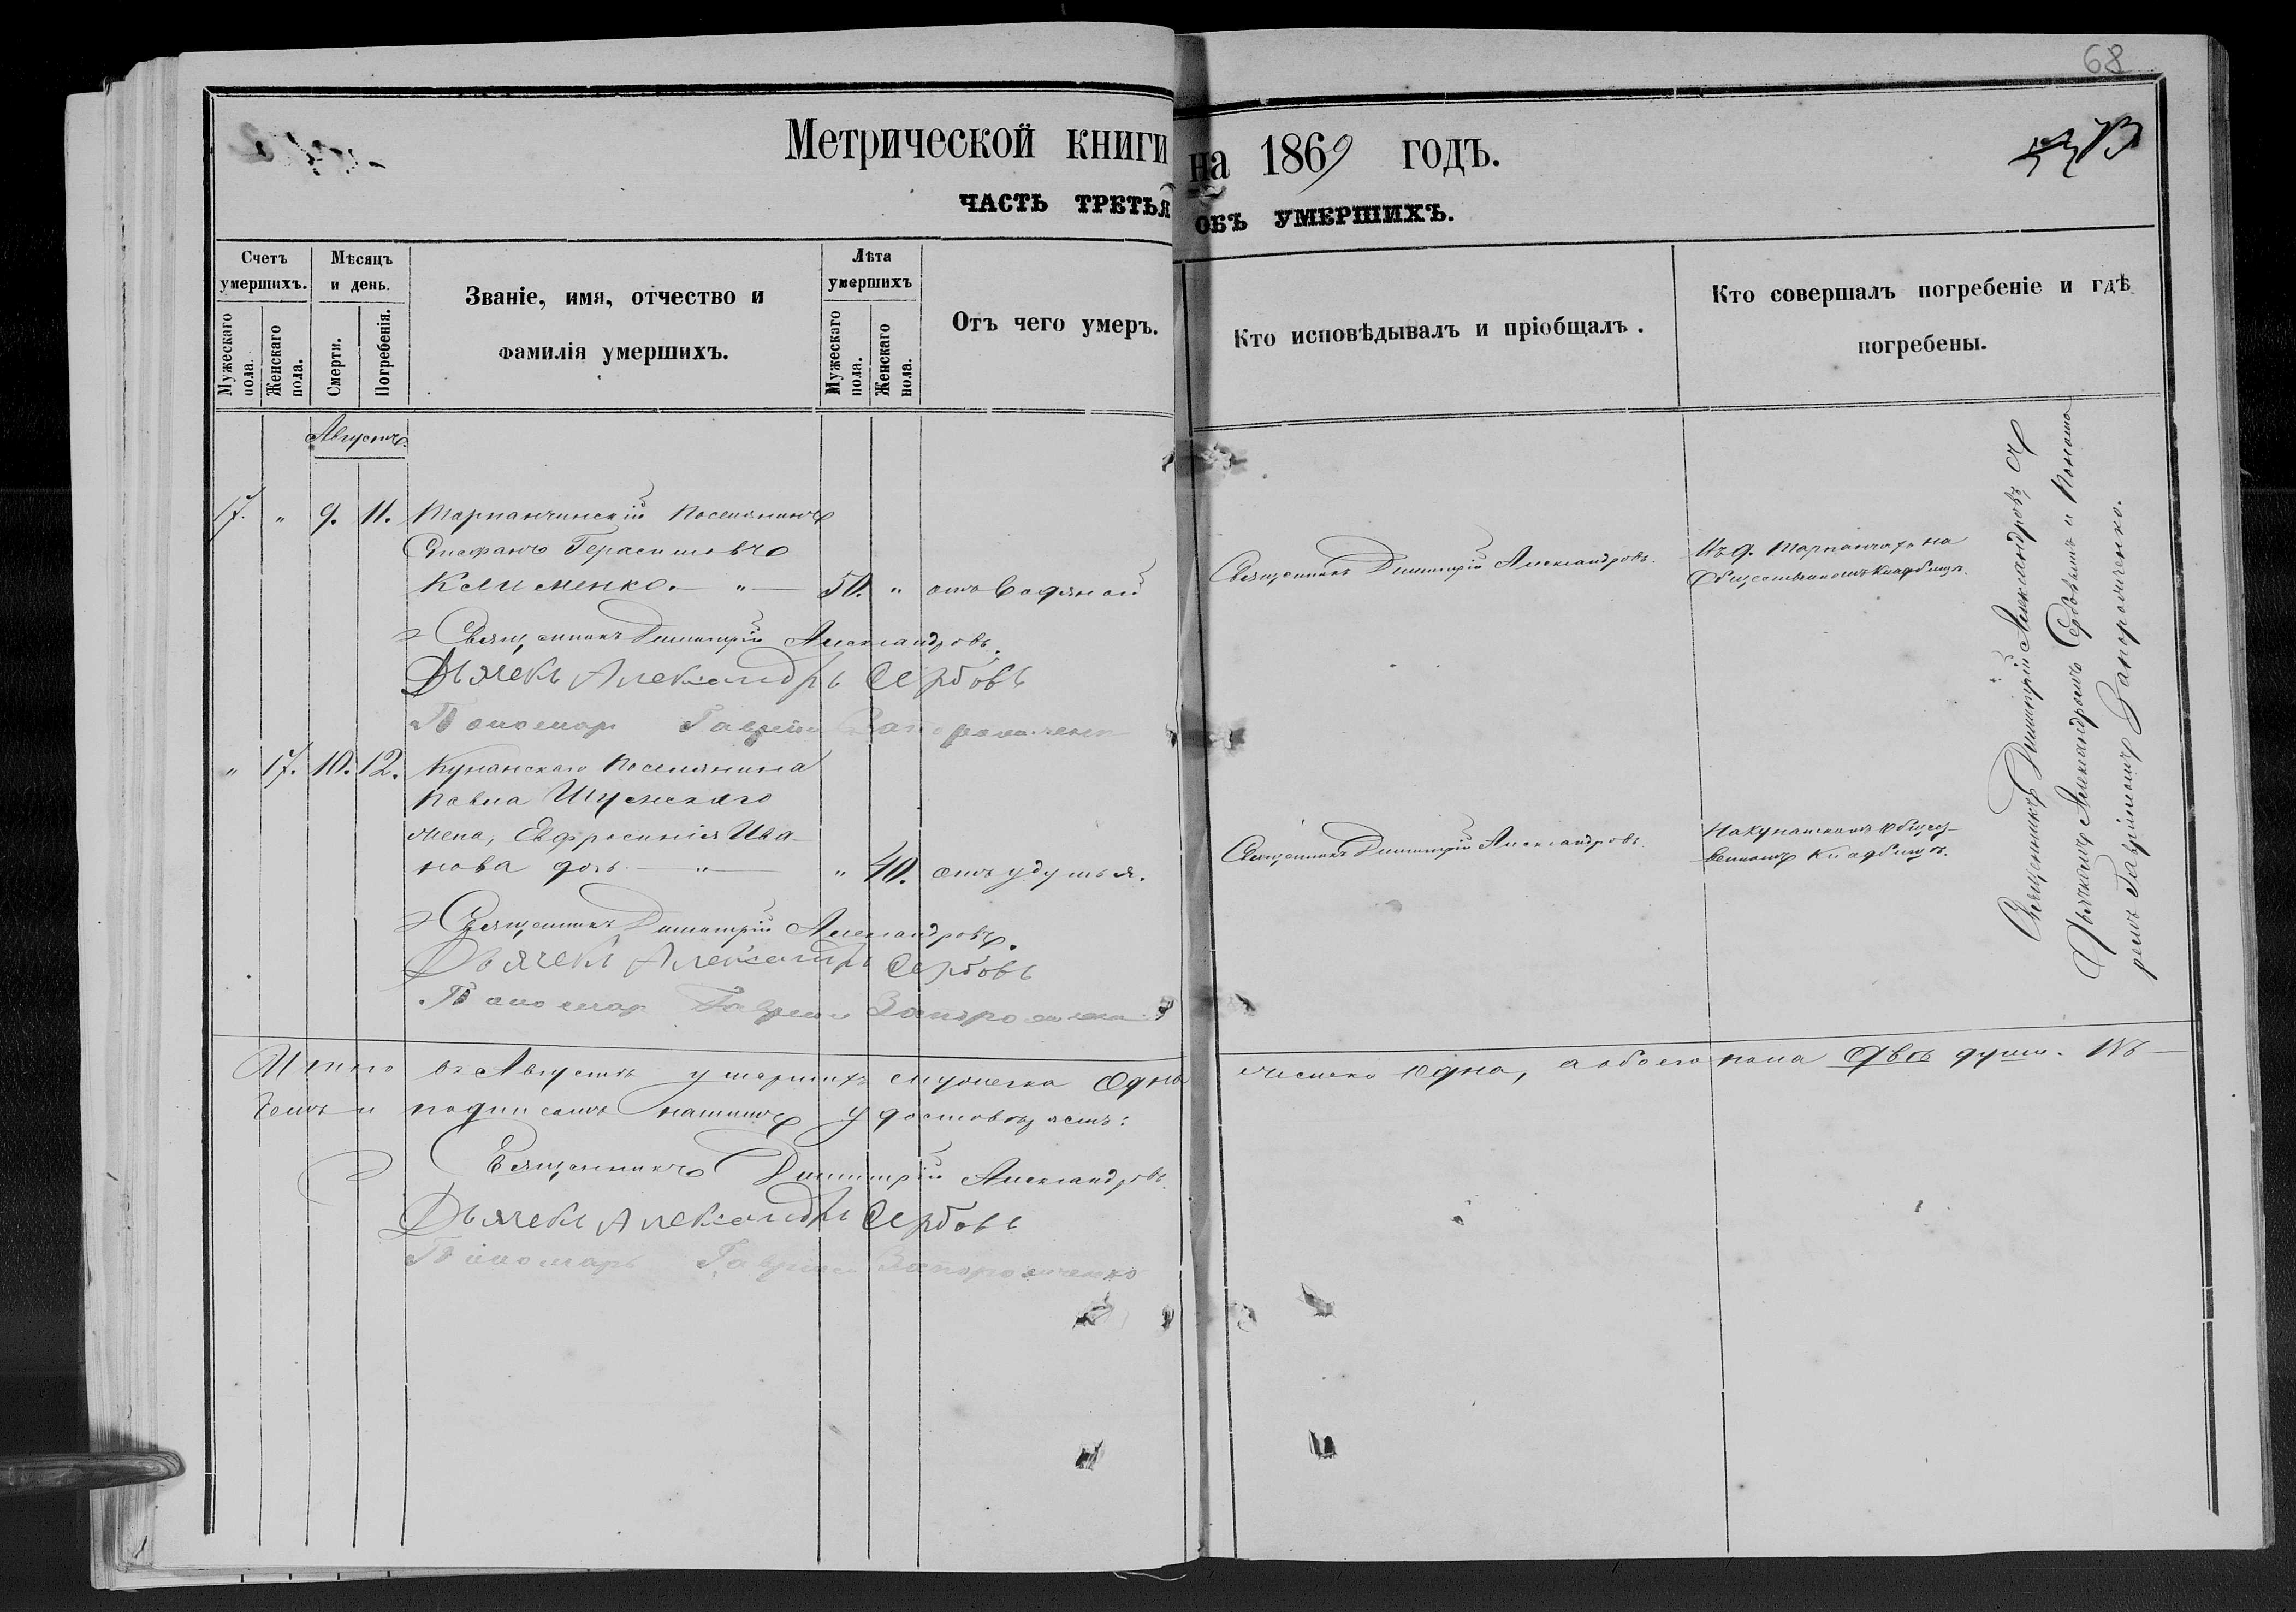 68
Метрической книги на 1869 годъ.
73
ЧАСТЬ ТРЕТЬЯ ОБЪ УМЕРШИХЪ.
Счетъ умершихъ.
Мужескаго пола.
Женскаго пола.
Мѣсяцъ и день.
Смерти.
Погребенія.
Званіе, имя, отчество и
фамилія умершихъ.
Лѣта умершихъ
Мужескаго пола.
Женскаго пола.
Отъ чего умеръ.
Кто исповѣдывалъ и пріобщалъ.
Кто совершалъ погребеніе и гдѣ
погребены.
Августъ
17. " 9. 11. Тарпанчинскій Поселянинъ
Епифанъ Герасимовъ
Клименко. — " — 50. " отъ водяной
Священникъ Димитрій Александровъ.
Въ д. Тарпанчахъ на
Общественномъ кладбищѣ.
Священникъ Димитрій Александровъ.
Дьячекъ Александръ Сербовъ
Пономарь Гавріилъ Запорожченко
" 17. 10. 12. Кунанскаго Поселянина
Павла Шумскаго
жена, Евфросинія Ива-
нова дочь — " — " 40. отъ удушья.
Священникъ Димитрій Александровъ.
На Кунанскомъ общест-
венномъ кладбищѣ.
Священникъ Димитрій Александровъ.
Дьячекъ Александръ Сербовъ
Пономарь Гавріилъ Запорожченко
Священникъ Димитрій Александровъ съ
Дьячкомъ Александромъ Сербовымъ и Понома
ремъ Гавріиломъ Запорожченко.
Итого въ Августѣ умершихъ мужеска Одна женска одна, а обоего пола двѣ души. Въ
чемъ и подписомъ нашимъ удостовѣряемъ:
Священникъ Димитрій Александровъ.
Дьячекъ Александръ Сербовъ
Пономарь Гавріилъ Запорожченко